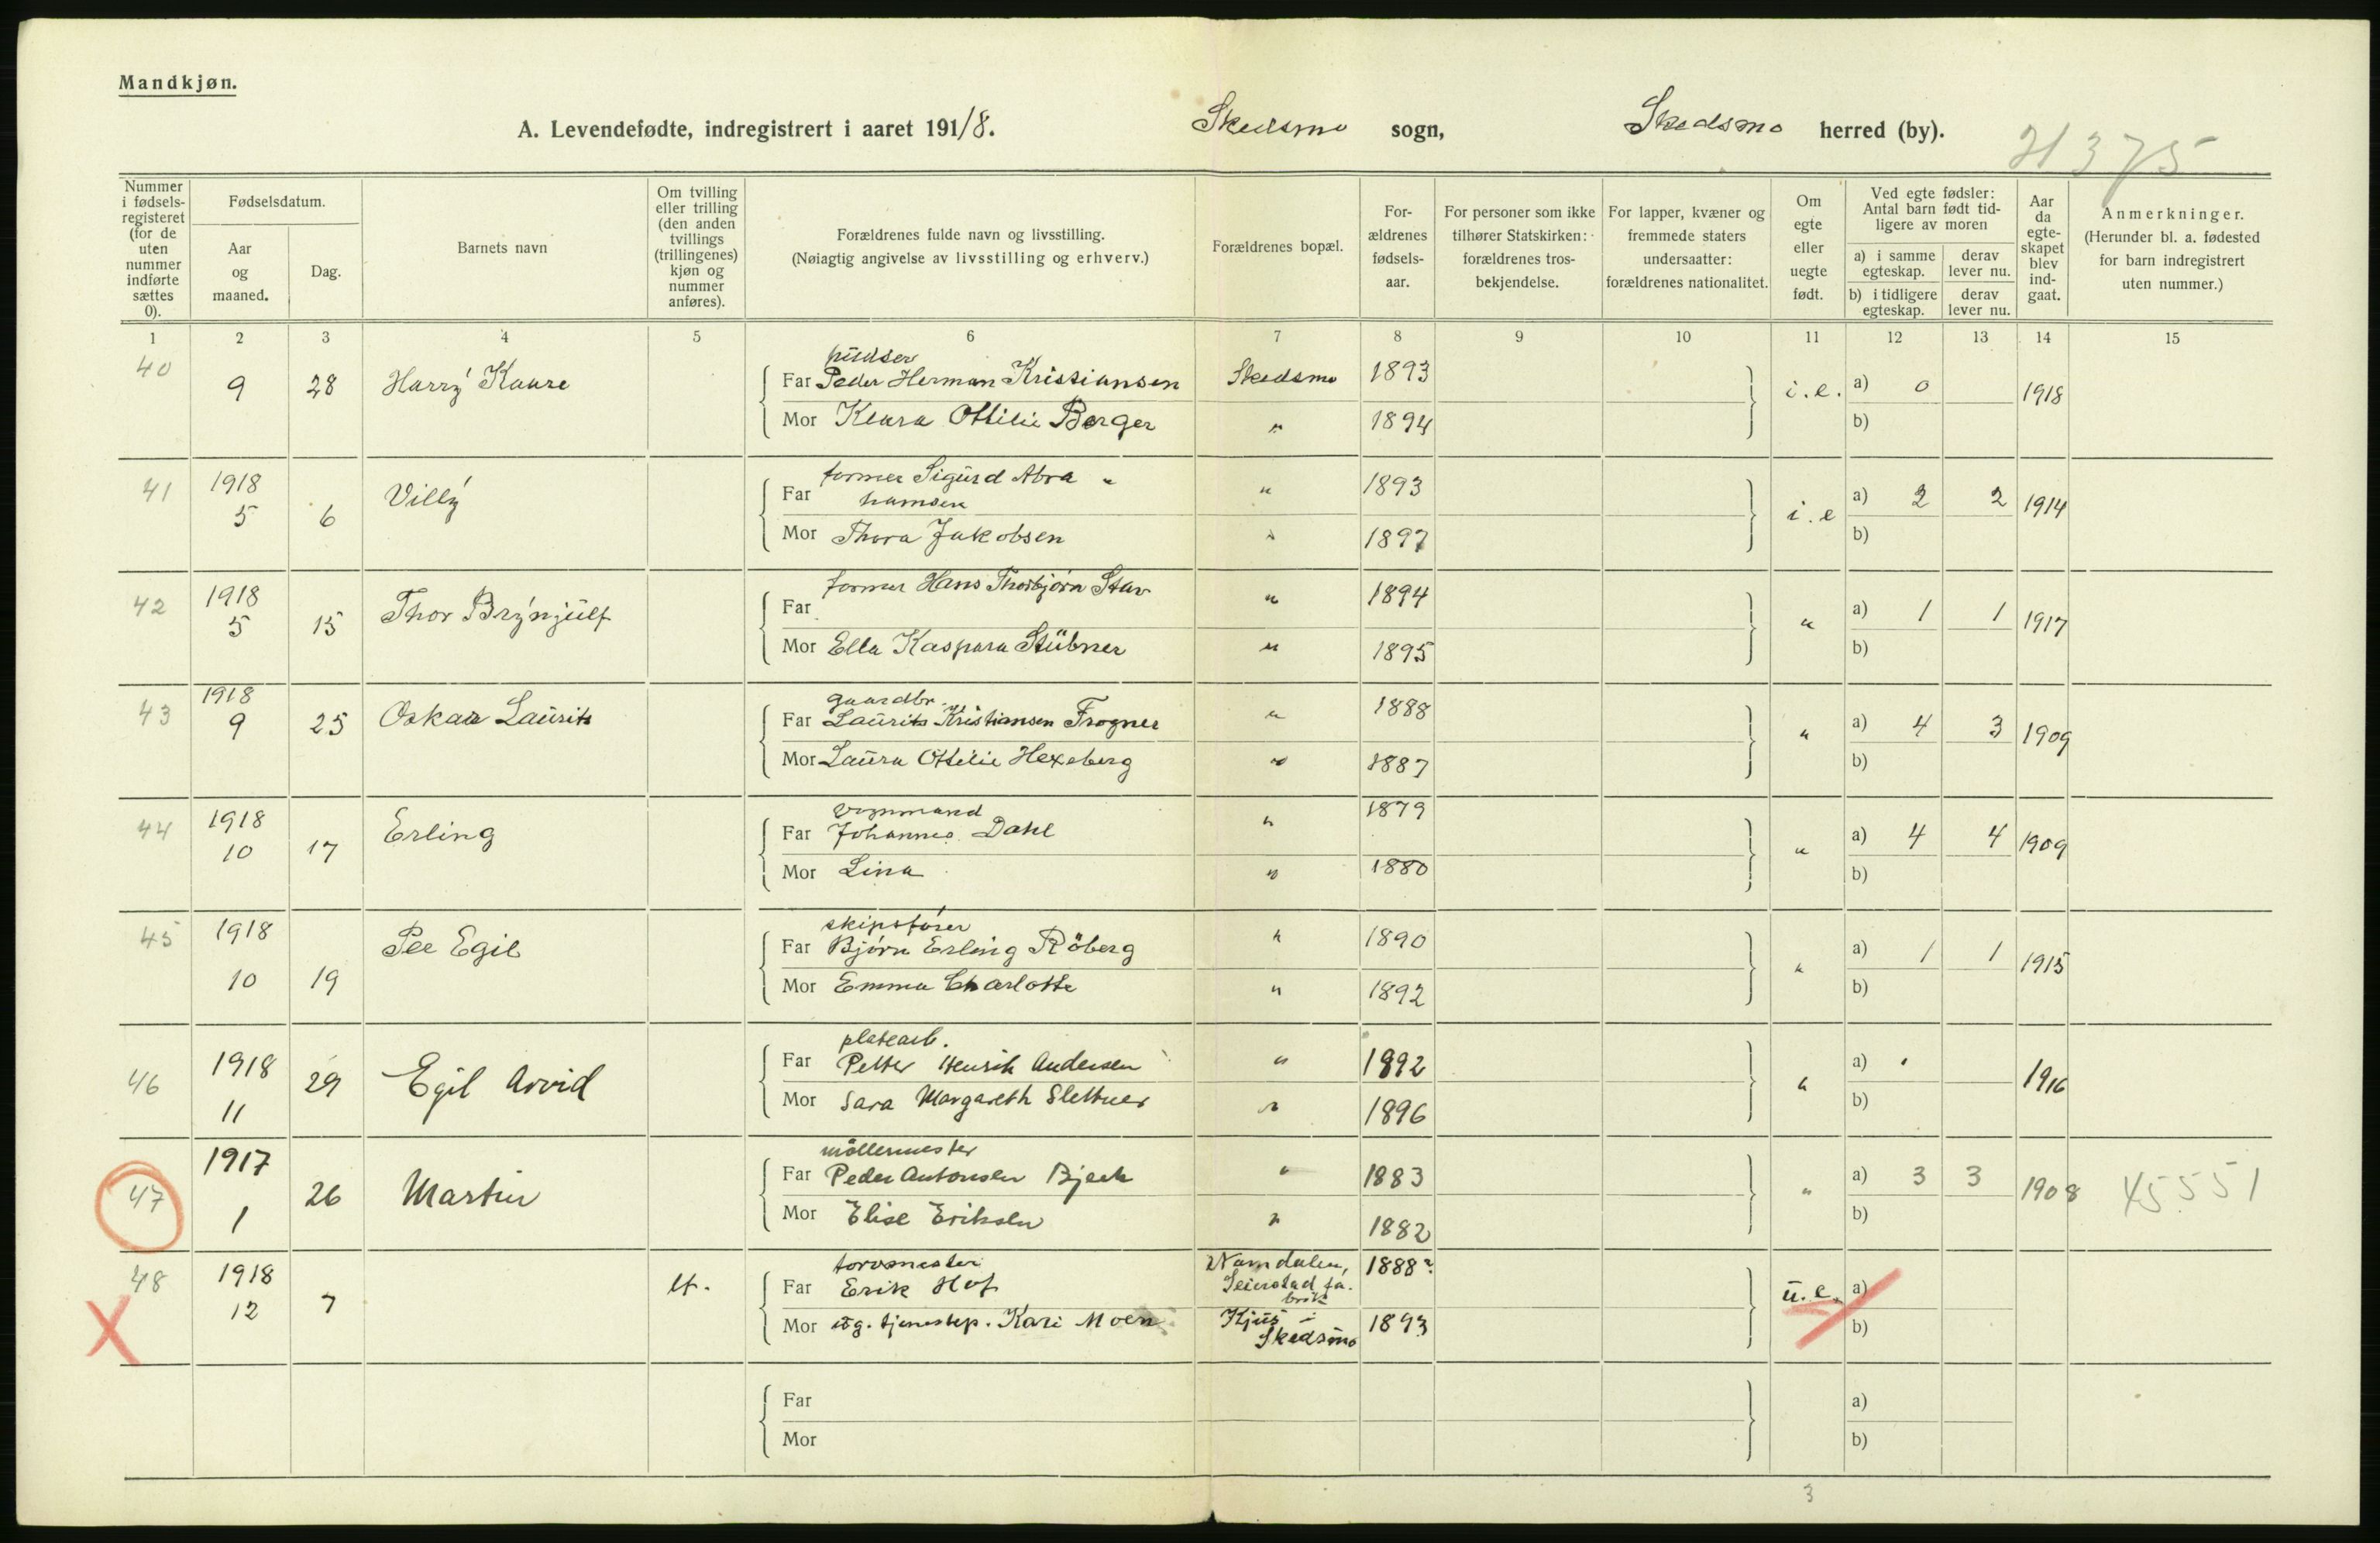 Mandkjøn.
A. Levendefødte, indregistrert i aaret 191/8. Skedsmo sogn, Skedsmo herred (by).
21375
Nummer i fødsels-registeret (for de uten nummer indførte sættes 0).
Fødselsdatum.
Aar og maaned.
Dag.
Barnets navn
Om tvilling eller trilling (den anden tvillings (trillingenes) kjøn og nummer anføres).
Forældrenes fulde navn og livsstilling.
(Nøiagtig angivelse av livsstilling og erhverv.)
Forældrenes bopæl.
For-ældrenes fødsels-aar.
For personer som ikke tilhører Statskirken: forældrenes tros-bekjendelse.
For lapper, kvæner og fremmede staters undersaatter: forældrenes nationalitet.
Om egte eller uegte født.
Ved egte fødsler: Antal barn født tid-ligere av moren
a) i samme egteskap. derav lever nu.
b) i tidligere egteskap. derav lever nu.
Aar da egte-skapet blev ind-gaat.
Anmerkninger.
(Herunder bl. a. fødested for barn indregistrert uten nummer.)
1 2 3 4 5 6 7 8 9 10 11 12 13 14 15
40 9 28 Harrÿ Kaare
pudser
Far Peder Herman Kristiansen Skedsmo 1893 i.e. a) 0 1918
Mor Klara Ottilie Berger " 1894 b)
41 1918 5 6 Villÿ
former Sigurd Abra "
Far hamsen " 1893 i.e a) 2 2 1914
Mor Thora Jakobsen " 1897 b)
42 1918 5 15 Thor Brÿnjulf
former Hans Thorbjørn Stav
Far " 1894 " a) 1 1 1917
Mor Ella Kaspara Stübner " 1895 b)
43 1918 9 25 Oskar Laurits
gaardbr.
Far Laurits Kristiansen Frogner " 1888 " a) 4 3 1909
Mor Laura Ottilie Hexeberg " 1887 b)
44 1918 10 17 Erling
Far Johannes Dahl " 1879 " a) 4 4 1909
Mor Lina " 1880 b)
45 1918 10 19 Per Egil
skipsfører
Far Bjørn Erling Röberg " 1890 " a) 1 1 1915
Mor Emma Charlotte " 1892 b)
46 1918 11 29 Egil Arvid
platearb.
Far Petter Henrik Andersen " 1892 " a) 1916
Mor Sara Margareth Slettner " 1896 b)
47 1917 1 26 Martin
möllermester
Far Peder Antonsen Bjerk " 1883 " a) 3 3 1908 45551
Mor Elise Eriksen " 1882 b)
48 1918 12 7
torvmester
Far Erik Hof Namdalen, Seierstad fa.brik 1888? u.e. a)
Mor ug. tjenestep. Kari Moen Kjus i Skedsmo 1893 b)
Far a)
Mor b)
3